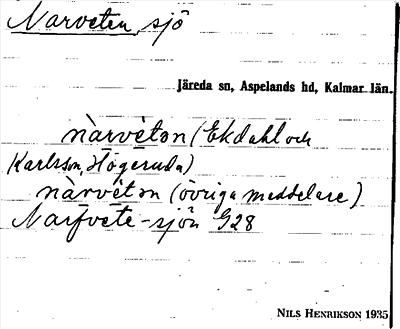 Narveten, sjö
Järeda sn, Aspelands hd, Kalmar län.
nàrvètən (Ekdahl och
Karlsson, Högeruda)
nàrvétən (övriga meddelare)
Narfvete-sjön G28
NILS HENRIKSON 1935